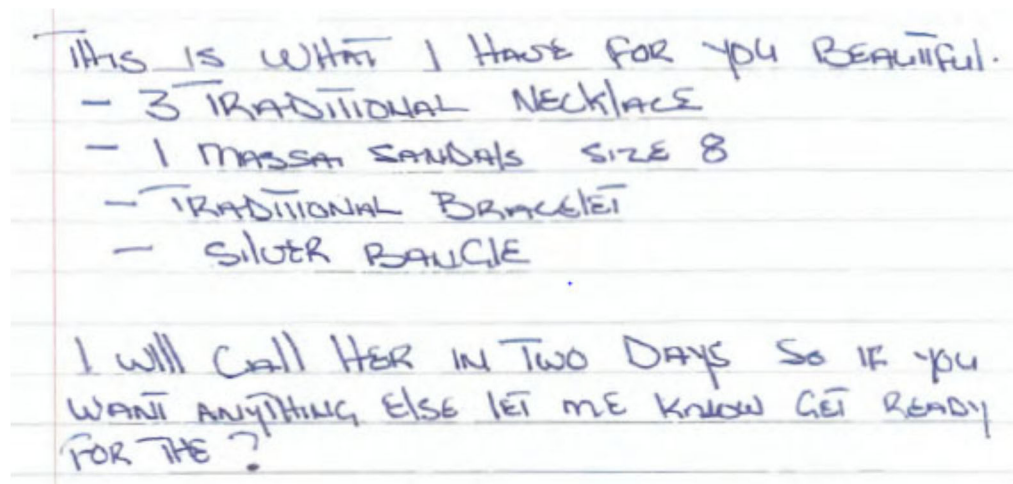 THIS IS WHAT I HAVE FOR YOU BEAUTIFUL.
- 3 TRADITIONAL NECKLACE
- 1 MASSAI SANDALS SIZE 8
- TRADITIONAL BRACELET
- SILVER BANGLE
I WILL CALL HER IN TWO DAYS SO IF YOU
WANT ANYTHING ELSE LET ME KNOW GET READY
FOR THE ?